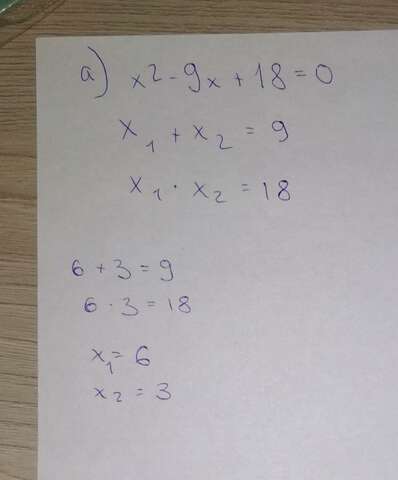 а) x² - 9x + 18 = 0
x₁ + x₂ = 9
x₁ · x₂ = 18
6 + 3 = 9
6 · 3 = 18
x₁ = 6
x₂ = 3